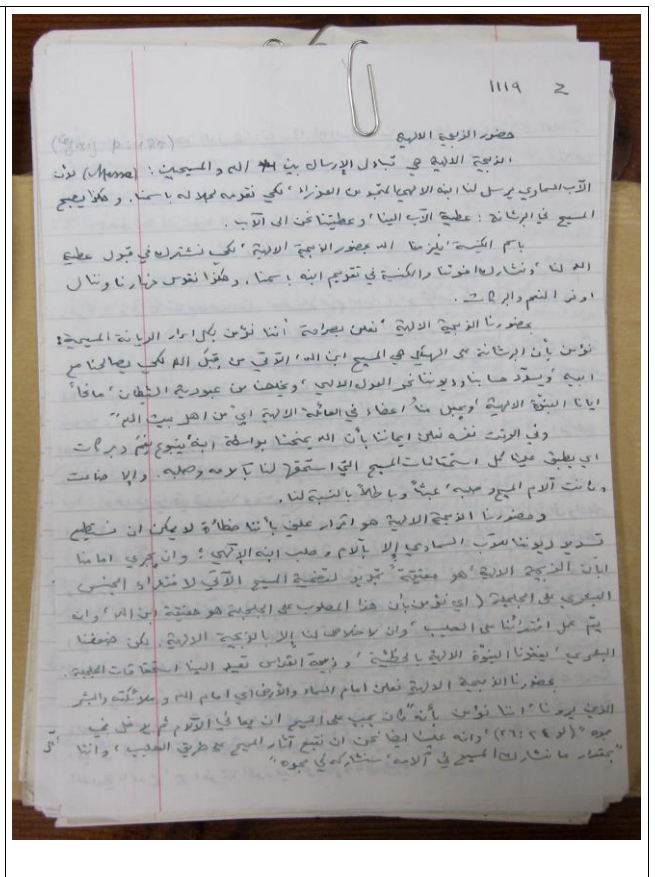 ١١١٩ ح
حضور الذبيحة الالهية
الذبيحة الالهية هي تبادل الإرسال بين الله والمسيحيين: (Messe) لأن
الآب السماوي يرسل لنا ابنه الالهي المتجسد من العذراء، لكي نقدمه لجلاله باسمنا. وهكذا يصبح
المسيح في البرشانة: عطية الآب الينا، وعطيتنا نحن الى الآب.
باسم الكنيسة يُلزمنا الله بحضور الذبيحة الالهية، لكي نشترك في قبول عطية
الله لنا، ونشارك اخوتنا والكنيسة في تقديم ابنه باسمنا. وهكذا نقدس نهارنا وننال
اوفر النعم والبركات.
بحضورنا الذبيحة الالهية، نعلن بصراحة أننا نؤمن بكل اسرار الديانة المسيحية:
نؤمن بأن البرشانة على الهيكل هي المسيح ابن الله، الآتي من قِبَل الله لكي يصالحنا مع
ابيه، ويسدّد حسابنا وديوننا نحو العدل الالهي، ويخلصنا من عبودية الشيطان، مانحاً
ايانا البنوّة الالهية، ويجعل منا أعضاء في العائلة الالهية اي "من اهل بيت الله"
وفي الوقت نفسه نعلن ايماننا بأن الله يمنحنا بواسطة ابنه ينبوع نِعَم وبركات
اي يطبق علينا كل استحقاقات المسيح التي استحقها لنا بآلامه وصلبه. والا ضاعت
وكانت آلام المسيح وصلبه عبثاً وباطلاً بالنسبة لنا.
وحضورنا الذبيحة الالهية هو اقرار علني بأننا خطأة لا يمكن ان نستطيع
تسديد ديوننا للآب السماوي إلا بآلام وصلب ابنه الإلهي؛ وان يجري امامنا
ابان الذبيحة الالهية، هو حقيقةً تجديد لتضحية المسيح الآتي لافتداء الجنس
البشري على الجلجلة (اي نؤمن بأن هذا المصلوب على الجلجلة هو حقيقة ابن الله، وانه
يتم عمل افتدائنا على الصليب، وان لا خلاص لنا إلا بالذبيحة الالهية. لكن ضعفنا
البشري، يفقدنا البنوّة الالهية بالخطيئة، وذبيحة القداس تعيد الينا استحقاقات الجلجلة.
بحضورنا الذبيحة الالهية نعلن امام السماء والأرض اي امام الله وملائكته والبشر
الذين يروننا، اننا نؤمن بأنه "كان يجب على المسيح ان يعاني الآلام ثم يدخل في
مجده" (لو ٢٤: ٢٦)، وانه علينا ايضاً نحن ان نتبع آثار المسيح على طريق الصليب، واننا
"بمقدار ما نشارك المسيح في آلامه، سنشاركه في مجده"